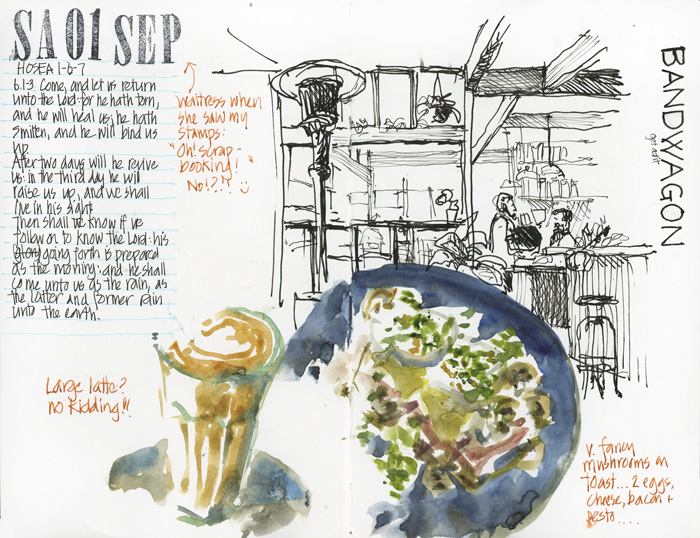 SA 01 SEP
HOSEA 1-6-7
6.1-3 Come, and let us return
unto the Lord: for he hath torn,
and he will heal us; he hath
smitten, and he will bind us
up.
After two days will he revive
us: in the third day he will
raise us up, and we shall
live in his sight.
Then shall we know if we
follow on to know the Lord: his
going forth is prepared
as the morning; and he shall
come unto us as the rain, as
the latter and former rain
unto the earth.
waitress when
she saw my
stamps:
"Oh! scrap-
booking!"
No!?!?
BANDWAGON
Large latte?
no kidding!!!
v. fancy
mushrooms on
toast... 2 eggs,
cheese, bacon +
pesto....